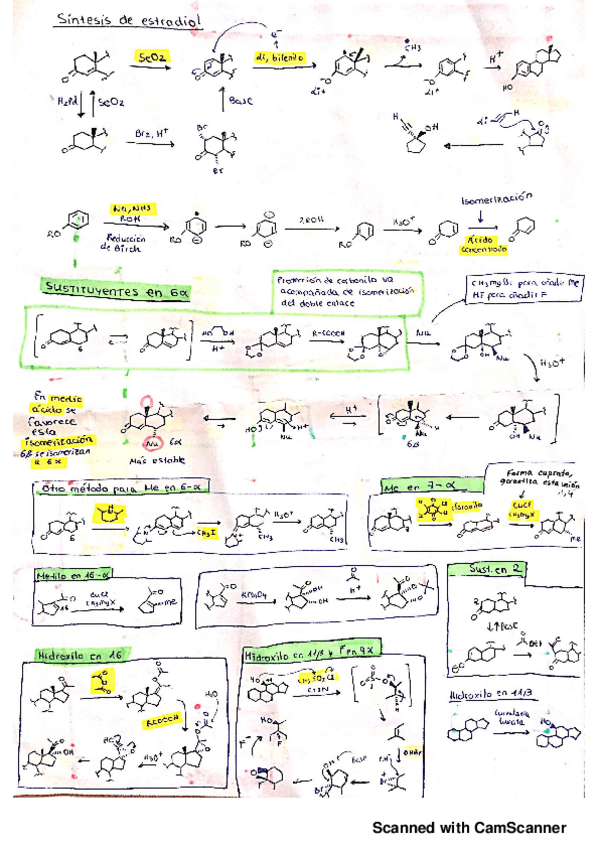 Síntesis de estradiol
e⁻
SeO2
Li, bifenilo
CH3
H⁺
Li⁺
Li⁺
HO
H2Pd
SeO2
Base
Br2, H⁺
Br
Br
OH
Li
Na, NH3
ROH
Reducción
de Birch
RO
RO
RO
RO
2 ROH
H3O⁺
Isomerización
Ácido
concentrado
Sustituyentes en 6α
Protección de carbonilo va
acompañada de isomerización
del doble enlace
CH3MgBr para añadir Me
HF para añadir F
H⁺
R-COOOH
Nu
H3O⁺
En medio
ácido se
favorece
esta
isomerización
6β se isomerizan
a 6α
Nu
6α
Más estable
H⁺
Nu
6β
OH
Nu
Otro método para Me en 6-α
CH3I
CH3
H3O⁺
CH3
Me en 7-α
cloranilo
Forma cuprato,
garantiza esta unión
1,4
CuCl
CH3MgX
Me
Metilo en 16-α
16
CuCl
CH3MgX
Me
KMnO4
OH
OH
H⁺
Sust. en 2
2
Base
OEt
Hidroxilo en 16
RCOOOH
H2O
H3O⁺
OH
Hidroxilo en 11β y F en 9α
HO
CH3SO2Cl
OHBr
Base
Br
F⁻
HO
F
Hidroxilo en 11β
Curvularia
lunata
HO
Scanned with CamScanner